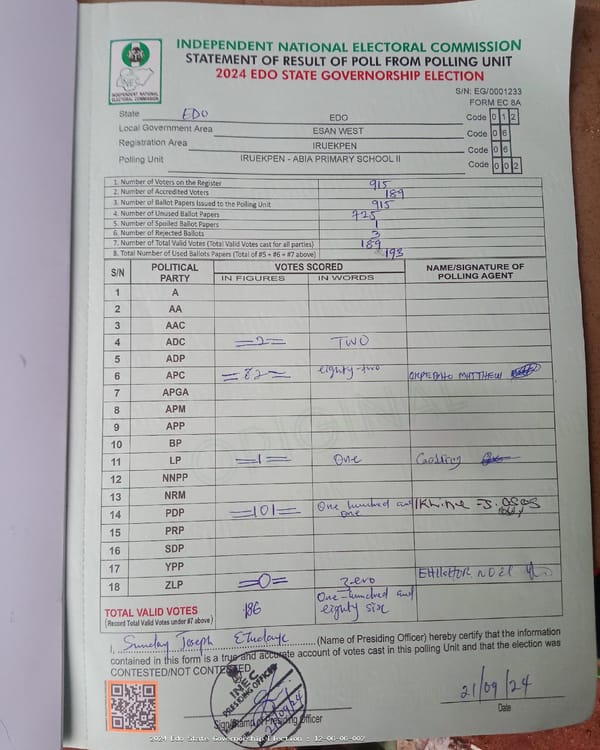 INDEPENDENT NATIONAL ELECTORAL COMMISSION
STATEMENT OF RESULT OF POLL FROM POLLING UNIT
2024 EDO STATE GOVERNORSHIP ELECTION
INDEPENDENT NATIONAL ELECTORAL COMMISSION
S/N: EG/0001233
FORM EC 8A
State EDO EDO Code 0 1 2
Local Government Area ESAN WEST Code 0 6
Registration Area IRUEKPEN Code 0 6
Polling Unit IRUEKPEN - ABIA PRIMARY SCHOOL II Code 0 0 2
1. Number of Voters on the Register 915
2. Number of Accredited Voters 189
3. Number of Ballot Papers Issued to the Polling Unit 915
4. Number of Unused Ballot Papers 725
5. Number of Spoiled Ballot Papers 1
6. Number of Rejected Ballots 3
7. Number of Total Valid Votes (Total Valid Votes cast for all parties) 189
8. Total Number of Used Ballots Papers (Total of #5 + #6 + #7 above) 193
S/N POLITICAL PARTY VOTES SCORED NAME/SIGNATURE OF POLLING AGENT
IN FIGURES IN WORDS
1 A
2 AA
3 AAC
4 ADC =2= TWO
5 ADP
6 APC =82= eighty-two MATTHEW
7 APGA
8 APM
9 APP
10 BP
11 LP =1= One
12 NNPP
13 NRM
14 PDP =101= One hundred and one
15 PRP
16 SDP
17 YPP
18 ZLP =0= Zero
TOTAL VALID VOTES 186 One-hundred and eighty six
(Record Total Valid Votes under #7 above)
I, Sunday Joseph (Name of Presiding Officer) hereby certify that the information
contained in this form is a true and accurate account of votes cast in this polling Unit and that the election was
CONTESTED/NOT CONTESTED.
INEC
PRESIDING OFFICER
21/09/24
Sign/Stamp of Presiding Officer
Date
ORIGINAL
2024 Edo State Governorship Election : 12-06-06-002